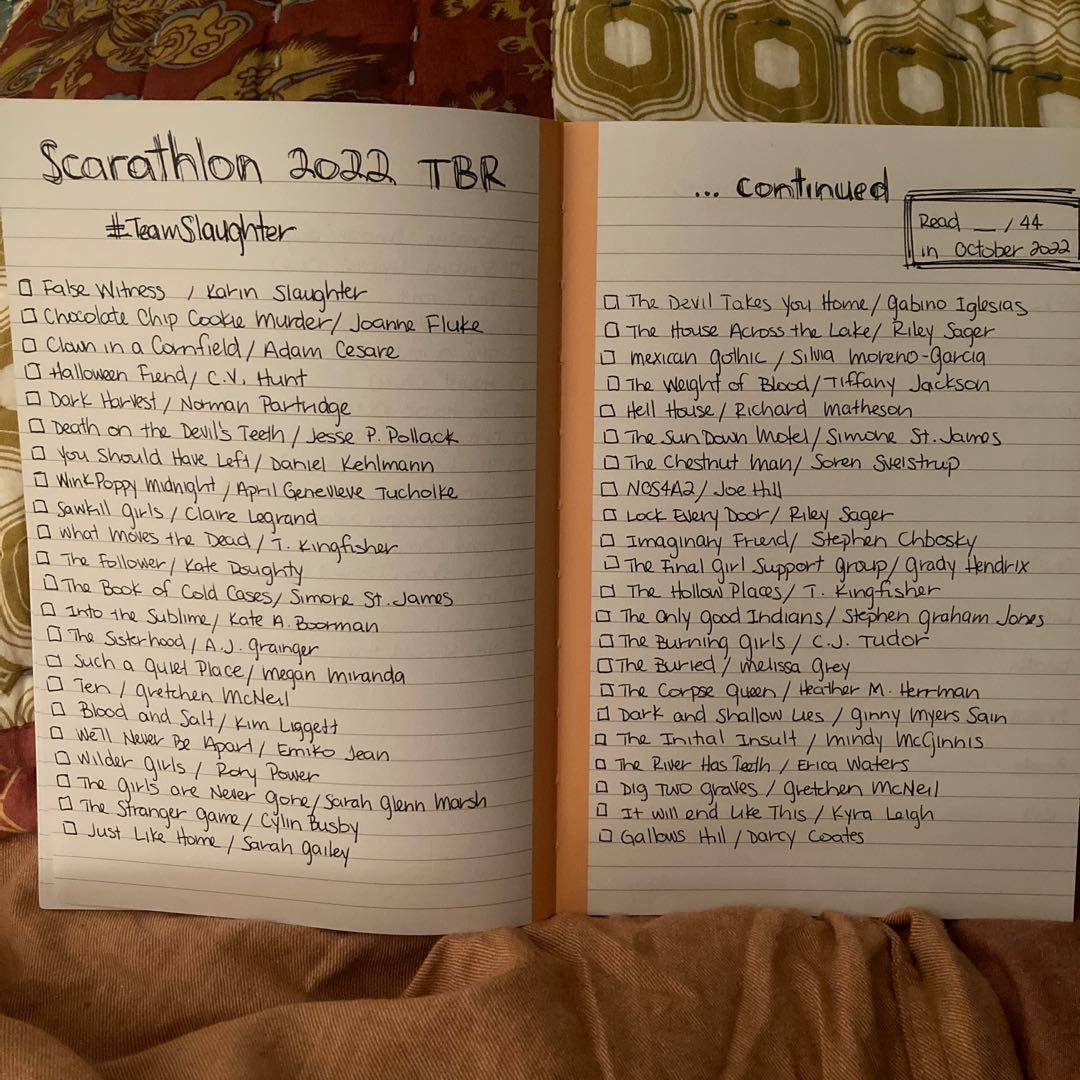 Scarathlon 2022 TBR
#TeamSlaughter
False Witness / Karin Slaughter
Chocolate Chip Cookie Murder / Joanne Fluke
Clown in a Cornfield / Adam Cesare
Halloween Fiend / C.V. Hunt
Dark Harvest / Norman Partridge
Death on the Devil's Teeth / Jesse P. Pollack
You Should Have Left / Daniel Kehlmann
Wink Poppy Midnight / April Genevieve Tucholke
Sawkill Girls / Claire Legrand
What Moves the Dead / T. Kingfisher
The Follower / Kate Doughty
The Book of Cold Cases / Simone St. James
Into the Sublime / Kate A. Boorman
The Sisterhood / A.J. Grainger
Such a Quiet Place / Megan Miranda
Ten / Gretchen McNeil
Blood and Salt / Kim Liggett
We'll Never Be Apart / Emiko Jean
Wilder Girls / Rory Power
The Girls are Never Gone / Sarah Glenn Marsh
The Stranger Game / Cylin Busby
Just Like Home / Sarah Gailey
... continued
Read __ / 44
in October 2022
The Devil Takes You Home / Gabino Iglesias
The House Across the Lake / Riley Sager
Mexican Gothic / Silvia Moreno-Garcia
The Weight of Blood / Tiffany Jackson
Hell House / Richard Matheson
The Sun Down Motel / Simone St. James
The Chestnut Man / Soren Sveistrup
NOS4A2 / Joe Hill
Lock Every Door / Riley Sager
Imaginary Friend / Stephen Chbosky
The Final Girl Support Group / Grady Hendrix
The Hollow Places / T. Kingfisher
The Only Good Indians / Stephen Graham Jones
The Burning Girls / C.J. Tudor
The Buried / Melissa Grey
The Corpse Queen / Heather M. Herrman
Dark and Shallow Lies / Ginny Myers Sain
The Initial Insult / Mindy McGinnis
The River Has Teeth / Erica Waters
Dig Two Graves / Gretchen McNeil
It Will End Like This / Kyra Leigh
Gallows Hill / Darcy Coates